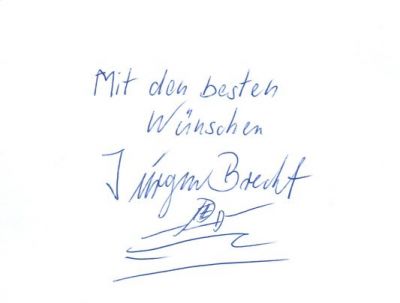 Mit den besten
Wünschen
Jürgen Brecht